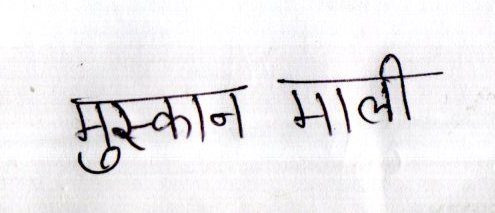 मुस्कान माली